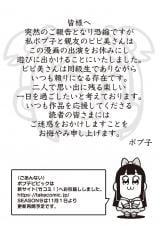 皆様へ
突然のご報告となり恐縮ですが
私ポプ子と親友のピピ美さんは
この漫画の出演をお休みにし
遊びに出かけることにいたしました。
ピピ美さんは同級生でありながら
いつも頼りになる存在です。
二人で思い出に残る楽しい
一日を過ごしたいと考えております。
いつも作品を応援してくださる
読者の皆さまには
ご迷惑をおかけしますことを
お悔やみ申し上げます。
ポプ子
『ごあんない』
ポプテピピックは
新サイト「竹コミ！」へお引越ししました。
https://takecomic.jp/
SEASON8は11月1日より
更新再開予定です。